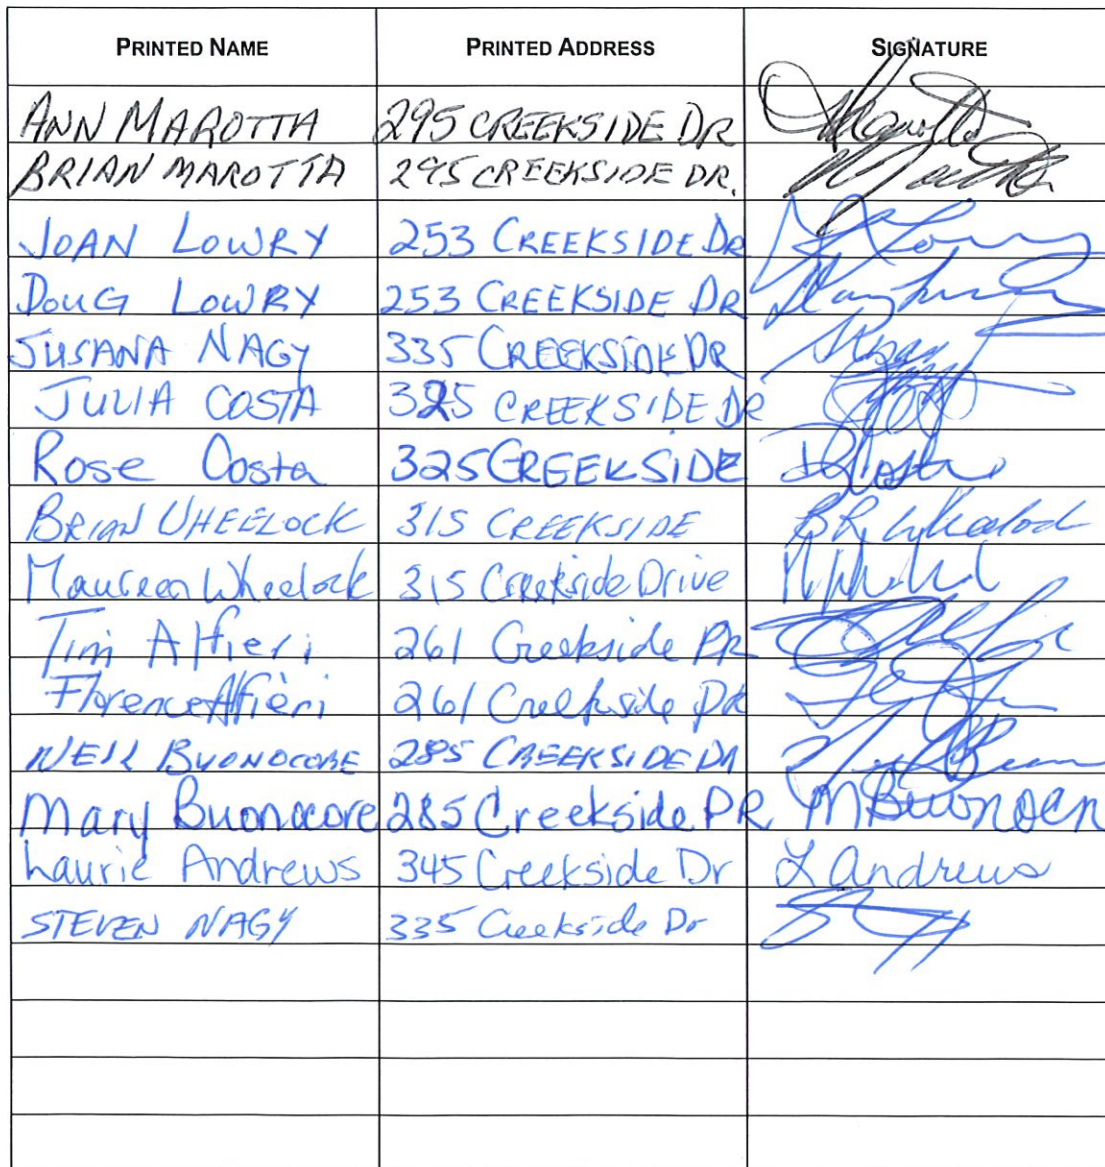 PRINTED NAME PRINTED ADDRESS SIGNATURE
ANN MAROTTA 295 CREEKSIDE DR
BRIAN MAROTTA 295 CREEKSIDE DR.
JOAN LOWRY 253 CREEKSIDE DR
DOUG LOWRY 253 CREEKSIDE DR
SUSANA NAGY 335 CREEKSIDE DR
JULIA COSTA 325 CREEKSIDE DR
Rose Costa 325 CREEKSIDE
BRIAN WHEELOCK 315 CREEKSIDE BR Wheelock
Maureen Wheelock 315 Creekside Drive
Tim Alfieri 261 Creekside DR
Florence Alfieri 261 Creekside DR
NEIL BUONOCORE 285 CREEKSIDE DR
Mary Buonocore 285 Creekside DR
Laurie Andrews 345 Creekside Dr L Andrews
STEVEN NAGY 335 Creekside Dr